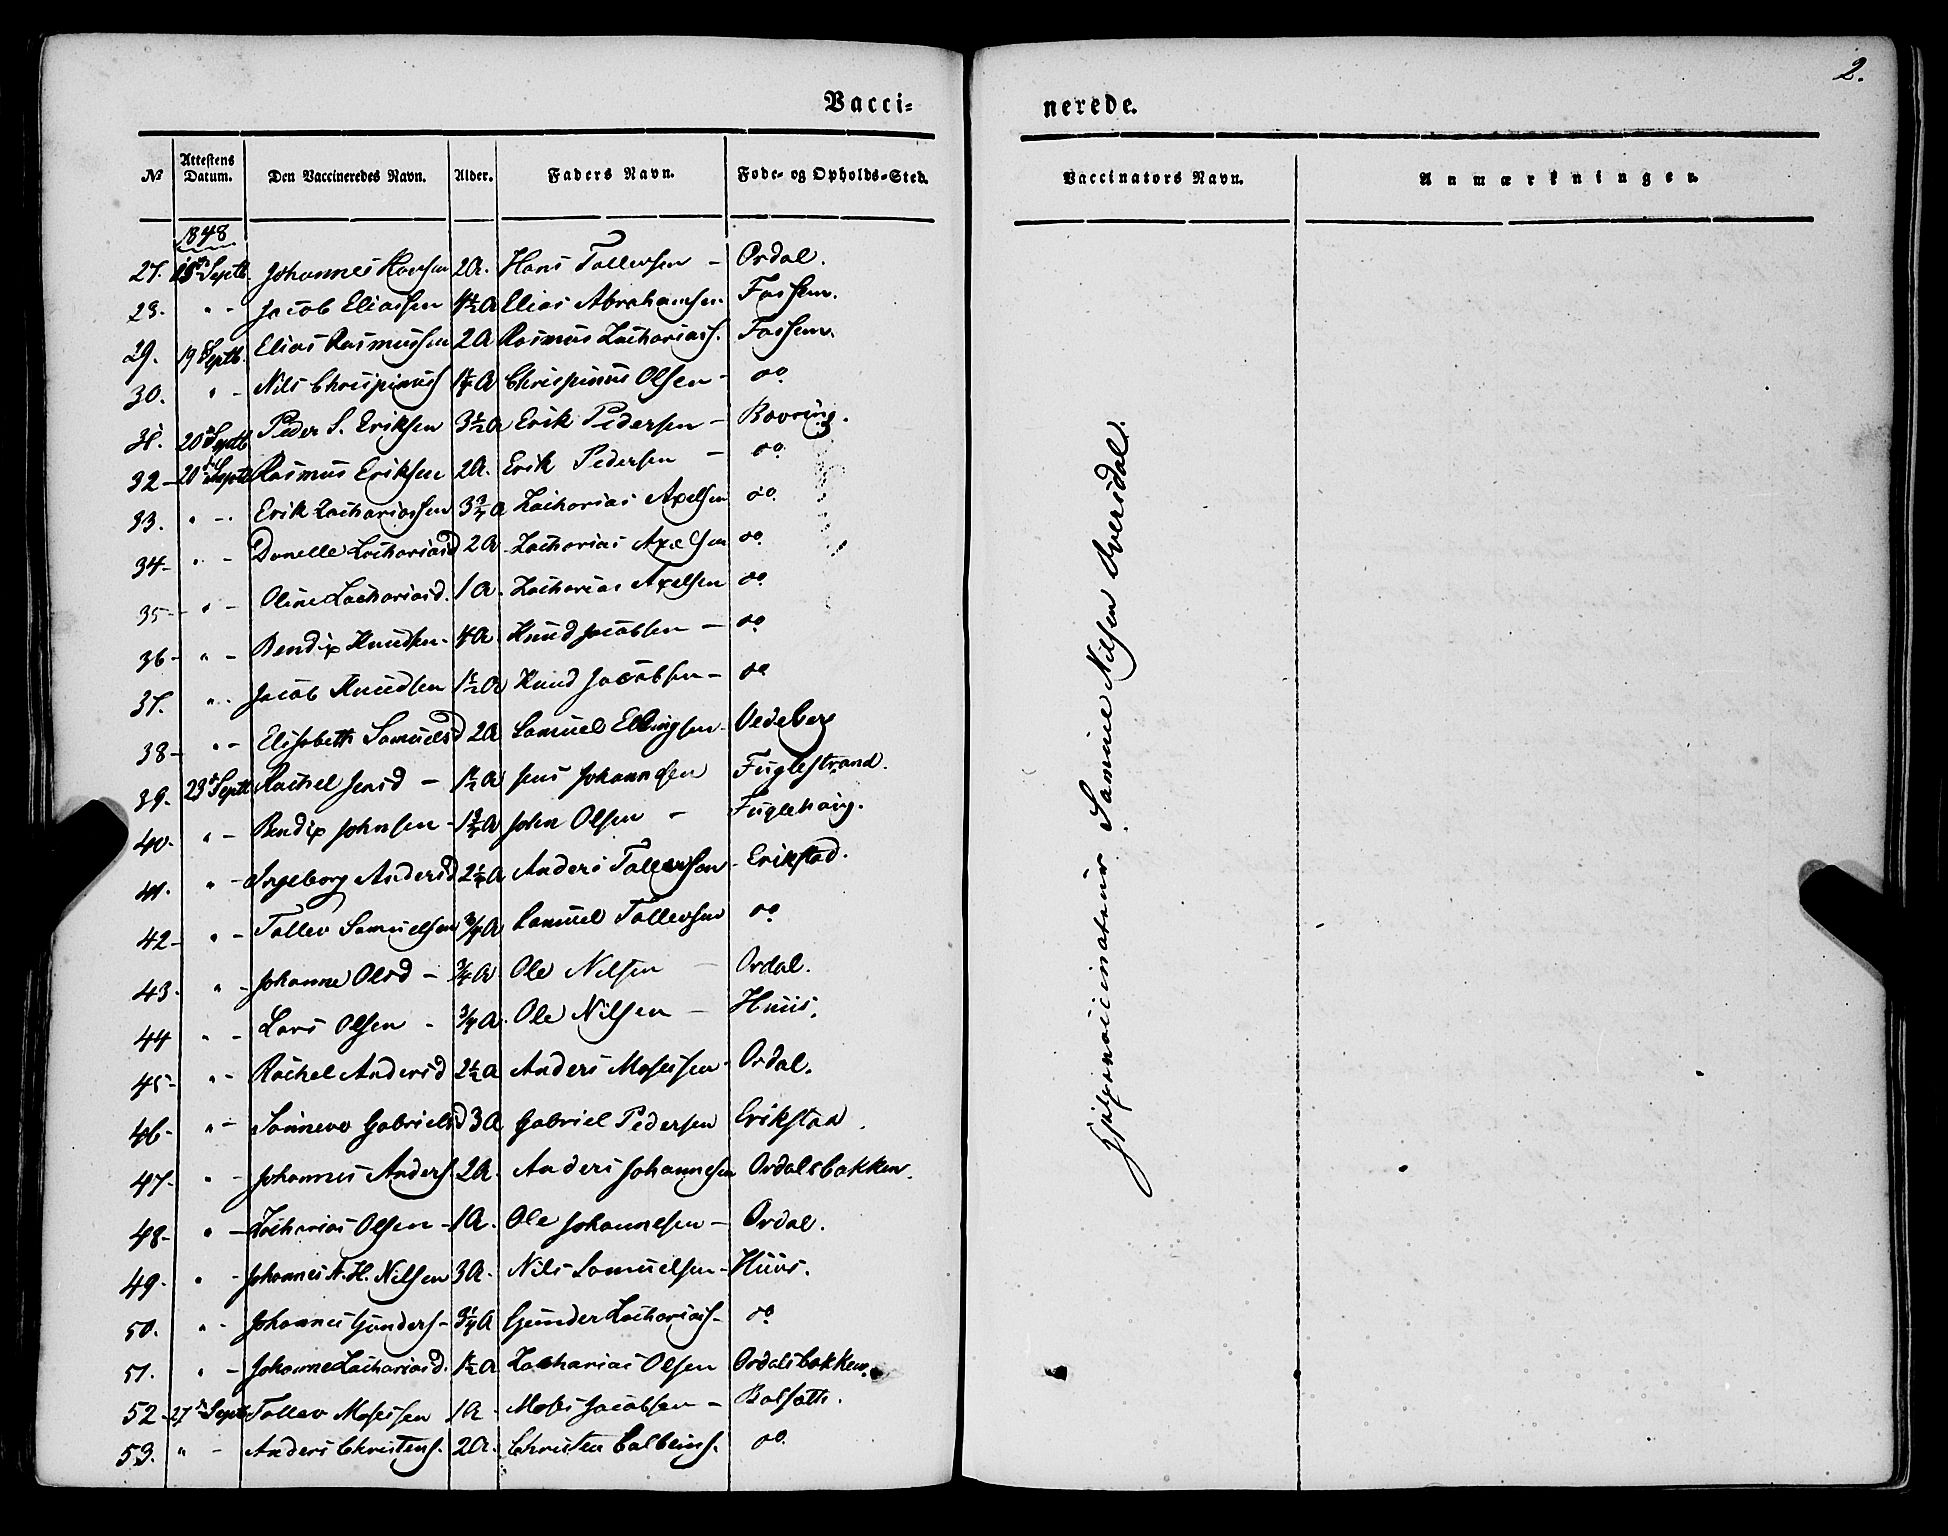 2.
Vacci= nerede.
No Attestens Datum. Den Vaccineredes Navn. Alder. Faders Navn. Føde- og Opholds-Sted. Vaccinators Navn. Anmærkninger.
1848
27. 15 Septb Johannes Hansen 2A. Hans Tollevsen - Ordal.
28. " - Jacob Eliassen 4½A Elias Abrahamsen Fossem.
29. 19 Septb. Elias Rasmussen 2A Rasmus Zachariass. Fossem.
30. " - Nils Chrispinuss Chrispinus Olsen - do
31. 20 Septb Peder S. Eriksen 3½A Erik Pedersen - Bovring.
32 - 20 Septb Rasmus Eriksen 2A. Erik Pedersen - do
33. " - Erik Zachariassen 3¾A Zacharias Axelsen do
34 - " - Zachariasd 2A Zacharias Axelsen do
35 - " - Oline Zachariasd. 1A. Zacharias Axelsen do
36 - " - Bendix Knudsen - 4A. Knud Jacobsen - do
37. " - Jacob Knudsen 1½A Knud Jacobsen - do
38 - " - Elisabeth Samuelsd 2A Samuel Ellingsen -
39. 23 Septb Rachel Jensd - 1½A Jens Johannesen Fuglestrand.
40 - " - Bendix Johnsen - 1¾A John Olsen - Fuglehoug.
41. " - Ingeborg Andersd 2¼A Anders Tollevsen - Erikstad.
42 - " - Tollev Samuelsen ¾A Samuel Tollevsen do
43. " - Johanne Olsd - ¾A Ole Nilsen - Ordal.
44 " - Lars Olsen - ¾A. Ole Nilsen - Huus.
45 - " - Rachel Andersd 2½A Anders Mosessen - Ordal.
46 - " - Sønneve Gabrielsd 3A Gabriel Pedersen Erikstad.
47 - " - Johannes Anders. 2A. Anders Johannesen Ordalsbakken.
48 - " - Zacharias Olsen - 1A. Ole Johannesen - Ordal.
49. " - Johannes N. H. Nilsen 3A. Nils Samuelsen - Huus.
50. " - Johannes Gunders - 3¼A Gunder Zachariass - do
51. " - Johanne Zachariasd. 1½A Zacharias Olsen Ordalsbakken.
52 - 27 Septb Tollev Mosessen 1A - Moses Jacobsen - Bolsæth.
53. " - Anders Christens. 2A. Christen do
Hjelpevaccinateur Samuel Nilsen Aversdal.